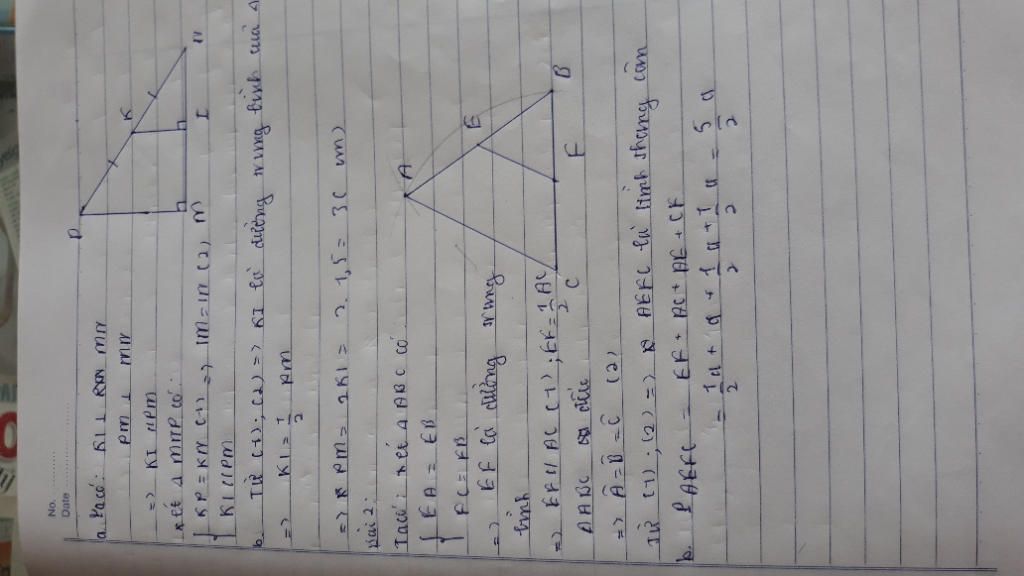 No. ............
Date ............
a. Ta có: KI ⊥ MN
PM ⊥ MN
=> KI // PM
xét Δ MNP có:
{ KP = KN (1) => IM = IN (2)
KI // PM
b. Từ (1); (2) => KI là đường trung bình của Δ
=> KI = 1/2 PM
=> PM = 2KI = 2. 1,5 = 3 (cm)
P
K
N
I
M
Bài 2:
Ta có: xét Δ ABC có:
{ EA = EB
FC = FB
=> EF là đường trung
bình
=> EF // AC (1); EF = 1/2 AC
ΔABC đều
=> Â = B̂ = Ĉ (2)
Từ (1); (2) => AEFC là hình thang cân
b. P AEFC = EF + AC + AE + CF
= 1/2 a + a + 1/2 a + 1/2 a = 5/2 a
A
E
B
F
C